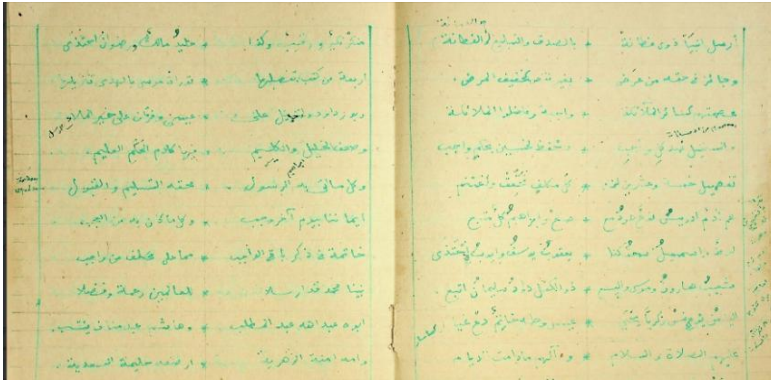 أرسل انبيا ذوى فطانة * بالصدق والتبليغ والأمانة
وجائز فى حقهم من عرض * بغير نقص كخفيف المرض
عصمتهم كسائر الملائكة * واجبة وفاضلوا الملائكة
والمستحيل ضد كل واجب * لخمسين بحكم واجب
تفصيل خمسة وعشرين لزم * كل مكلف فحقق واغتنم
هم آدم ادريس نوح هود مع * صالح وابراهيم كل متبع
لوط واسمعيل اسحق كذا * يعقوب يوسف وايوب احتذى
شعيب هارون وموسى واليسع * ذو الكفل داود سليمان اتبع
يونس زكريا يحيى * عيسى وطه خاتم دع غيا
عليهم الصلاة والسلام * وآلهم مادامت الايام
منكر نكير ورقيب وكذا * عتيد مالك ورضوان احتذى
أربعة من كتب تفصيلها * توراة موسى بالهدى تنزيلها
زبور داود وانجيل على * عيسى وفرقان على خير الملا
وصحف الخليل والكليم * فيها كلام الحكم العليم
وكل ما اتى به الرسول * فحقه التسليم والقبول
ايماننا بيوم آخر وجب * وكل ما كان به من العجب
خاتمة فى ذكر باقى الواجب * مما على مكلف من واجب
نبينا محمد قد ارسلا * للعالمين رحمة وفضلا
ابوه عبد الله عبد المطلب * وهاشم عبد مناف ينتسب
وامه آمنة الزهرية * ارضعه حليمة السعدية